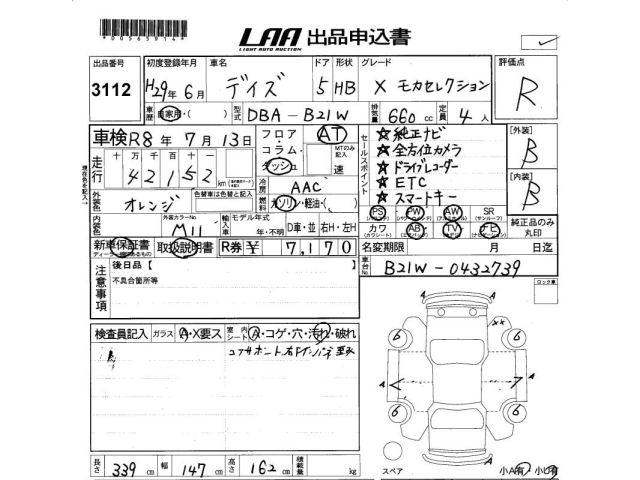 *00565914*
LAA 出品申込書
LIGHT AUTO AUCTION
出品番号 3112
初度登録年月 H29年 6月
車名 デイズ
ドア 5 形状 HB
グレード X モカセレクション
評価点 R
車歴 自家用・(
型式 DBA - B21W
排気量 660 cc
定員 4 人
車検 R8年 7月 13日
フロア・コラム・ダッシュ
AT
MTのみ記入
速
セールスポイント
☆ 純正ナビ
☆ 全方位カメラ
☆ ドライブレコーダー
☆ ETC
☆ スマートキー
[外装] B
[内装] B
走行 十 万 千 百 十
42152 km
冷房 AAC
燃料 ガソリン・軽油・(
外装色 オレンジ
色替車は色替と記入
内装色
外装カラーNo. M11
輸入車 モデル年式
年・不明 D車・並 右H・左H
PS PW AW SR
カワ AB TV ナビ
純正品のみ丸印
新車保証書
取扱説明書
R券 ¥ 7,170
名変期限 月 日迄
車台No. B21W-0432739
注意事項
後日品【
不具合箇所等
ロック車
検査員記入 ガラス A・X要ス 室内シート A・コゲ・穴・汚れ・破れ
A A
6 6 XX A
A 7 A
6 6
長さ 339 cm 幅 147 cm 高さ 162 cm 積載量 kg
スペア
小A有 小U有
現在色を記入